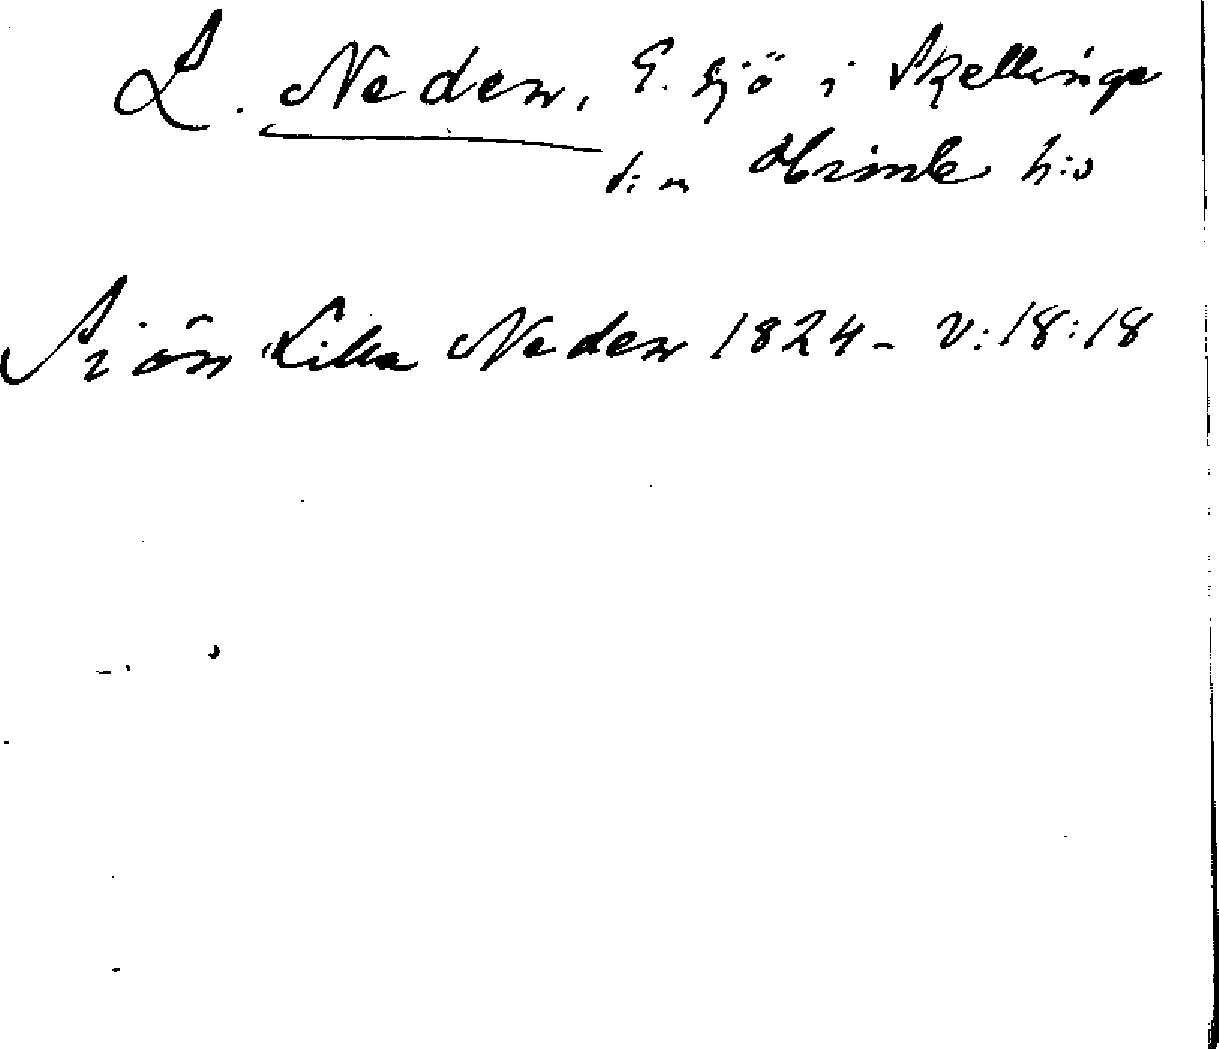 L. Neden, G. sjö i Skellinge
s:n Himle h:d
Sjön Lilla Neden 1824 - V:18:18